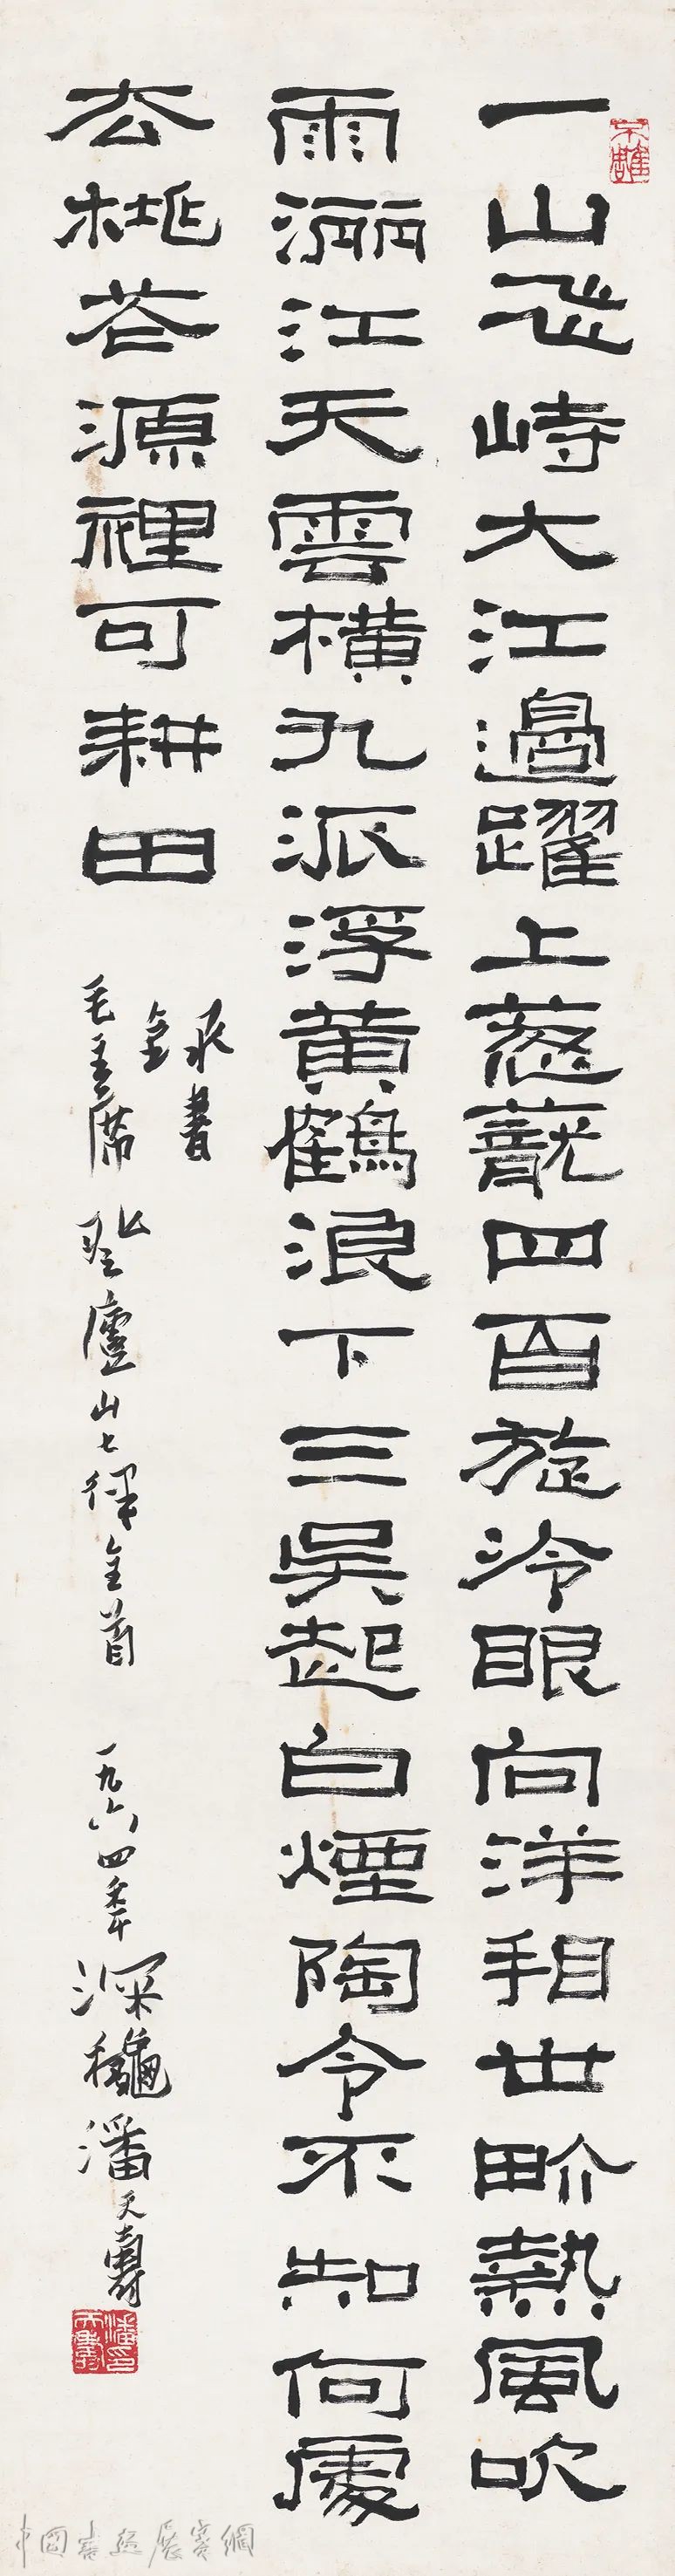 一山飛峙大江邊躍上葱蘢四百旋冷眼向洋看世畍熱風吹
雨灑江天雲橫九派浮黃鶴浪下三吳起白煙陶令不知何處
去桃花源裡可耕田
錄書
毛主席登廬山七律全首 一九六四年深龝潘天壽
潘天壽印
不雕
中國書法展賽網